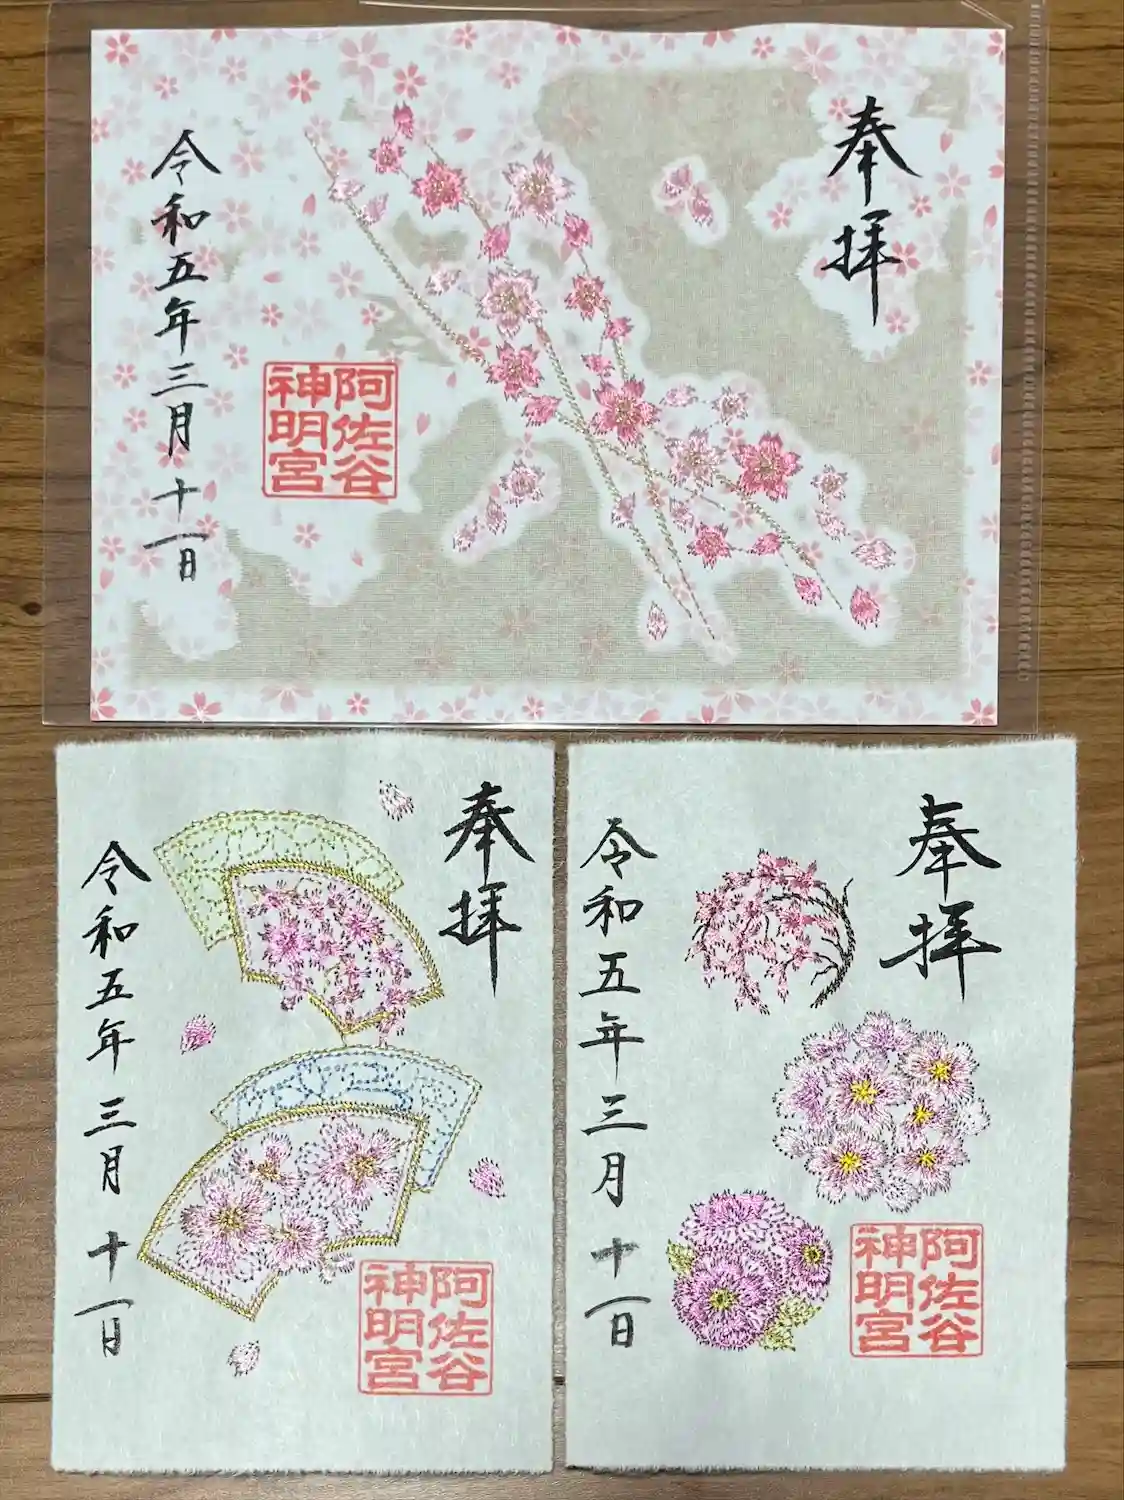 奉拝
阿佐谷
神明宮
令和五年三月十一日
奉拝
阿佐谷
神明宮
令和五年三月十一日
奉拝
阿佐谷
神明宮
令和五年三月十一日